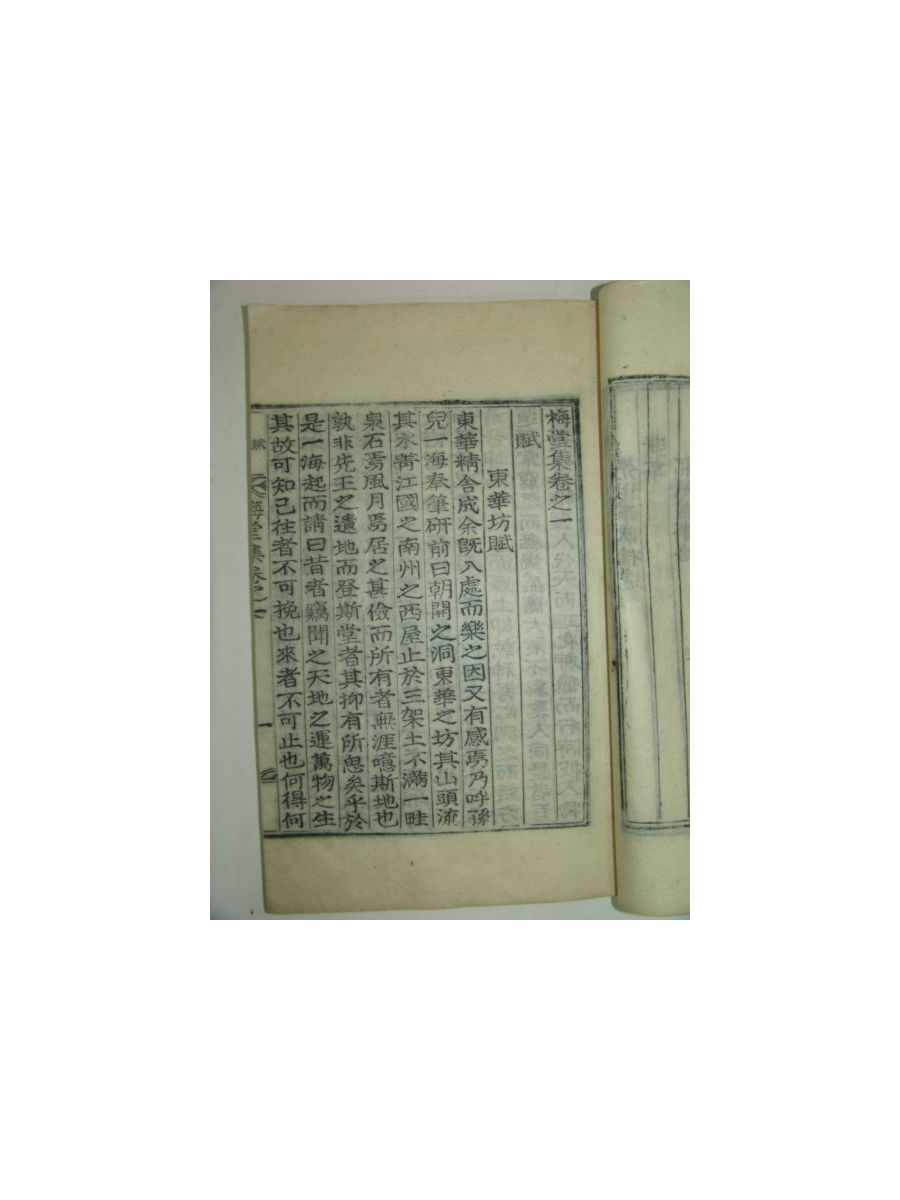 梅堂集卷之一
賦
東華坊賦
東華精舍成余旣入處而樂之因又有感焉乃呼孫
兒一海奉筆硏前曰朝開之洞東華之坊其山頭流
其水菁江國之南州之西屋止於三架土不滿一畦
泉石焉風月焉居之甚儉而所有者無涯噫斯地也
孰非先王之遺地而登斯堂者其抑有所思矣乎於
是一海起而請曰昔者竊聞之天地之運萬物之生
其故可知已往者不可挽也來者不可止也何得何
賦
梅堂集卷之一
一